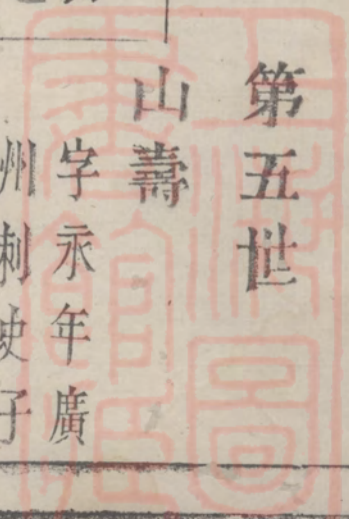 第五世
山壽
字永年廣
州刺史子